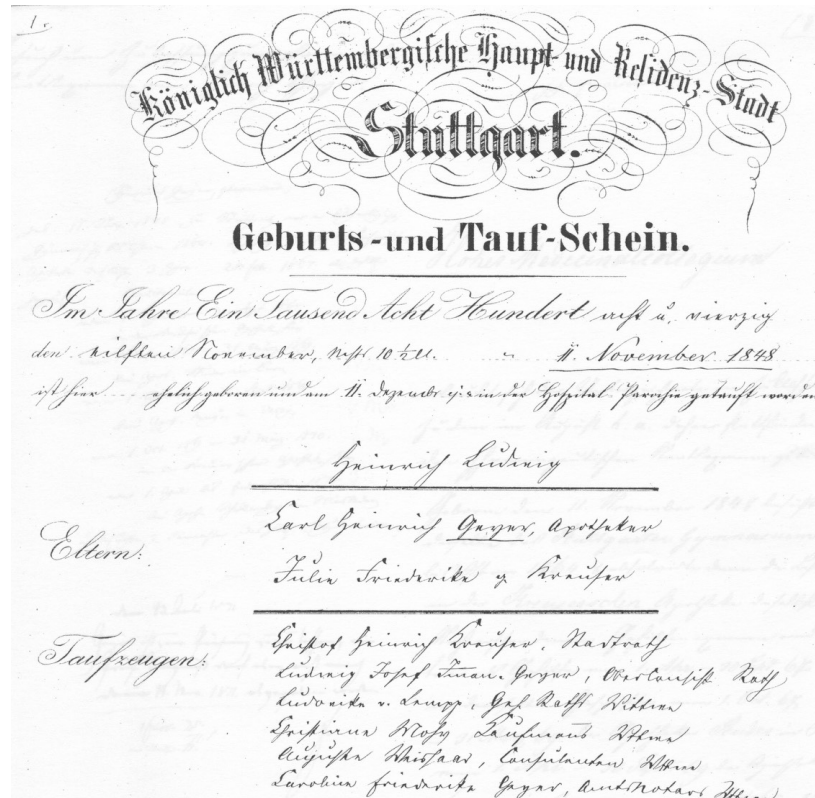 1.
Königlich Württembergische Haupt- und Residenz-Stadt
Stuttgart.
Geburts- und Tauf-Schein.
Im Jahre Ein Tausend Acht Hundert acht u. vierzig
den eilften November, Nchts 10 ½ U. " 11. November 1848
ist hier ehelich geboren und am 11. Dezember in der Hospital Parochie getauft worden
Heinrich Ludwig
Eltern:
Carl Heinrich Geyer, Apotheker
Julie Friederike g Kreuser
Taufzeugen:
Christof Heinrich Kreuser, Stadtrath
Ludwig Josef Iman. Geyer, Oberconsist Rath
Ludovike v. Lempp, Geh Raths Wittwe
Christiane Mohr Kaufmanns Wtwe
Auguste Weishaar, Consulenten Wtwe
Caroline Friederike Geyer, Amtsnotars